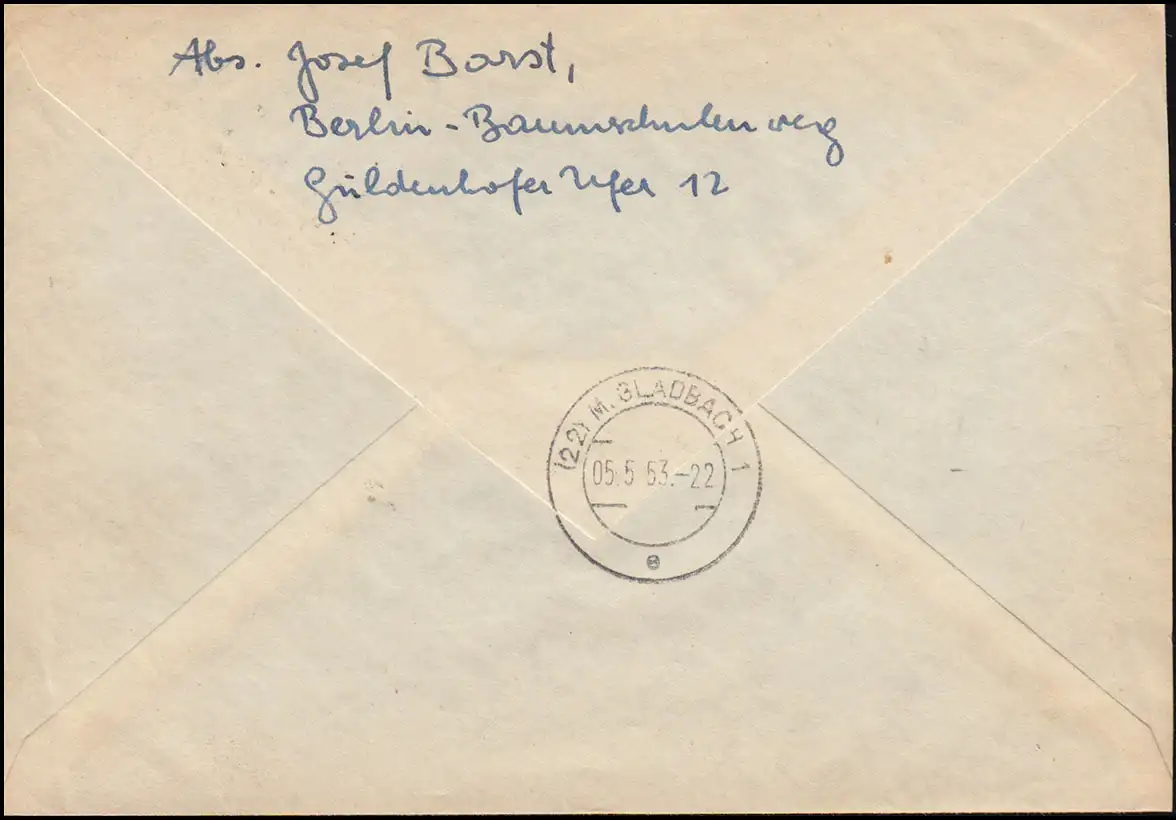 Abs. Josef Barst,
Berlin-Baumschulenweg
Güldenhofer Ufer 12
(22) M. GLADBACH 1
05.5 63.-22
e